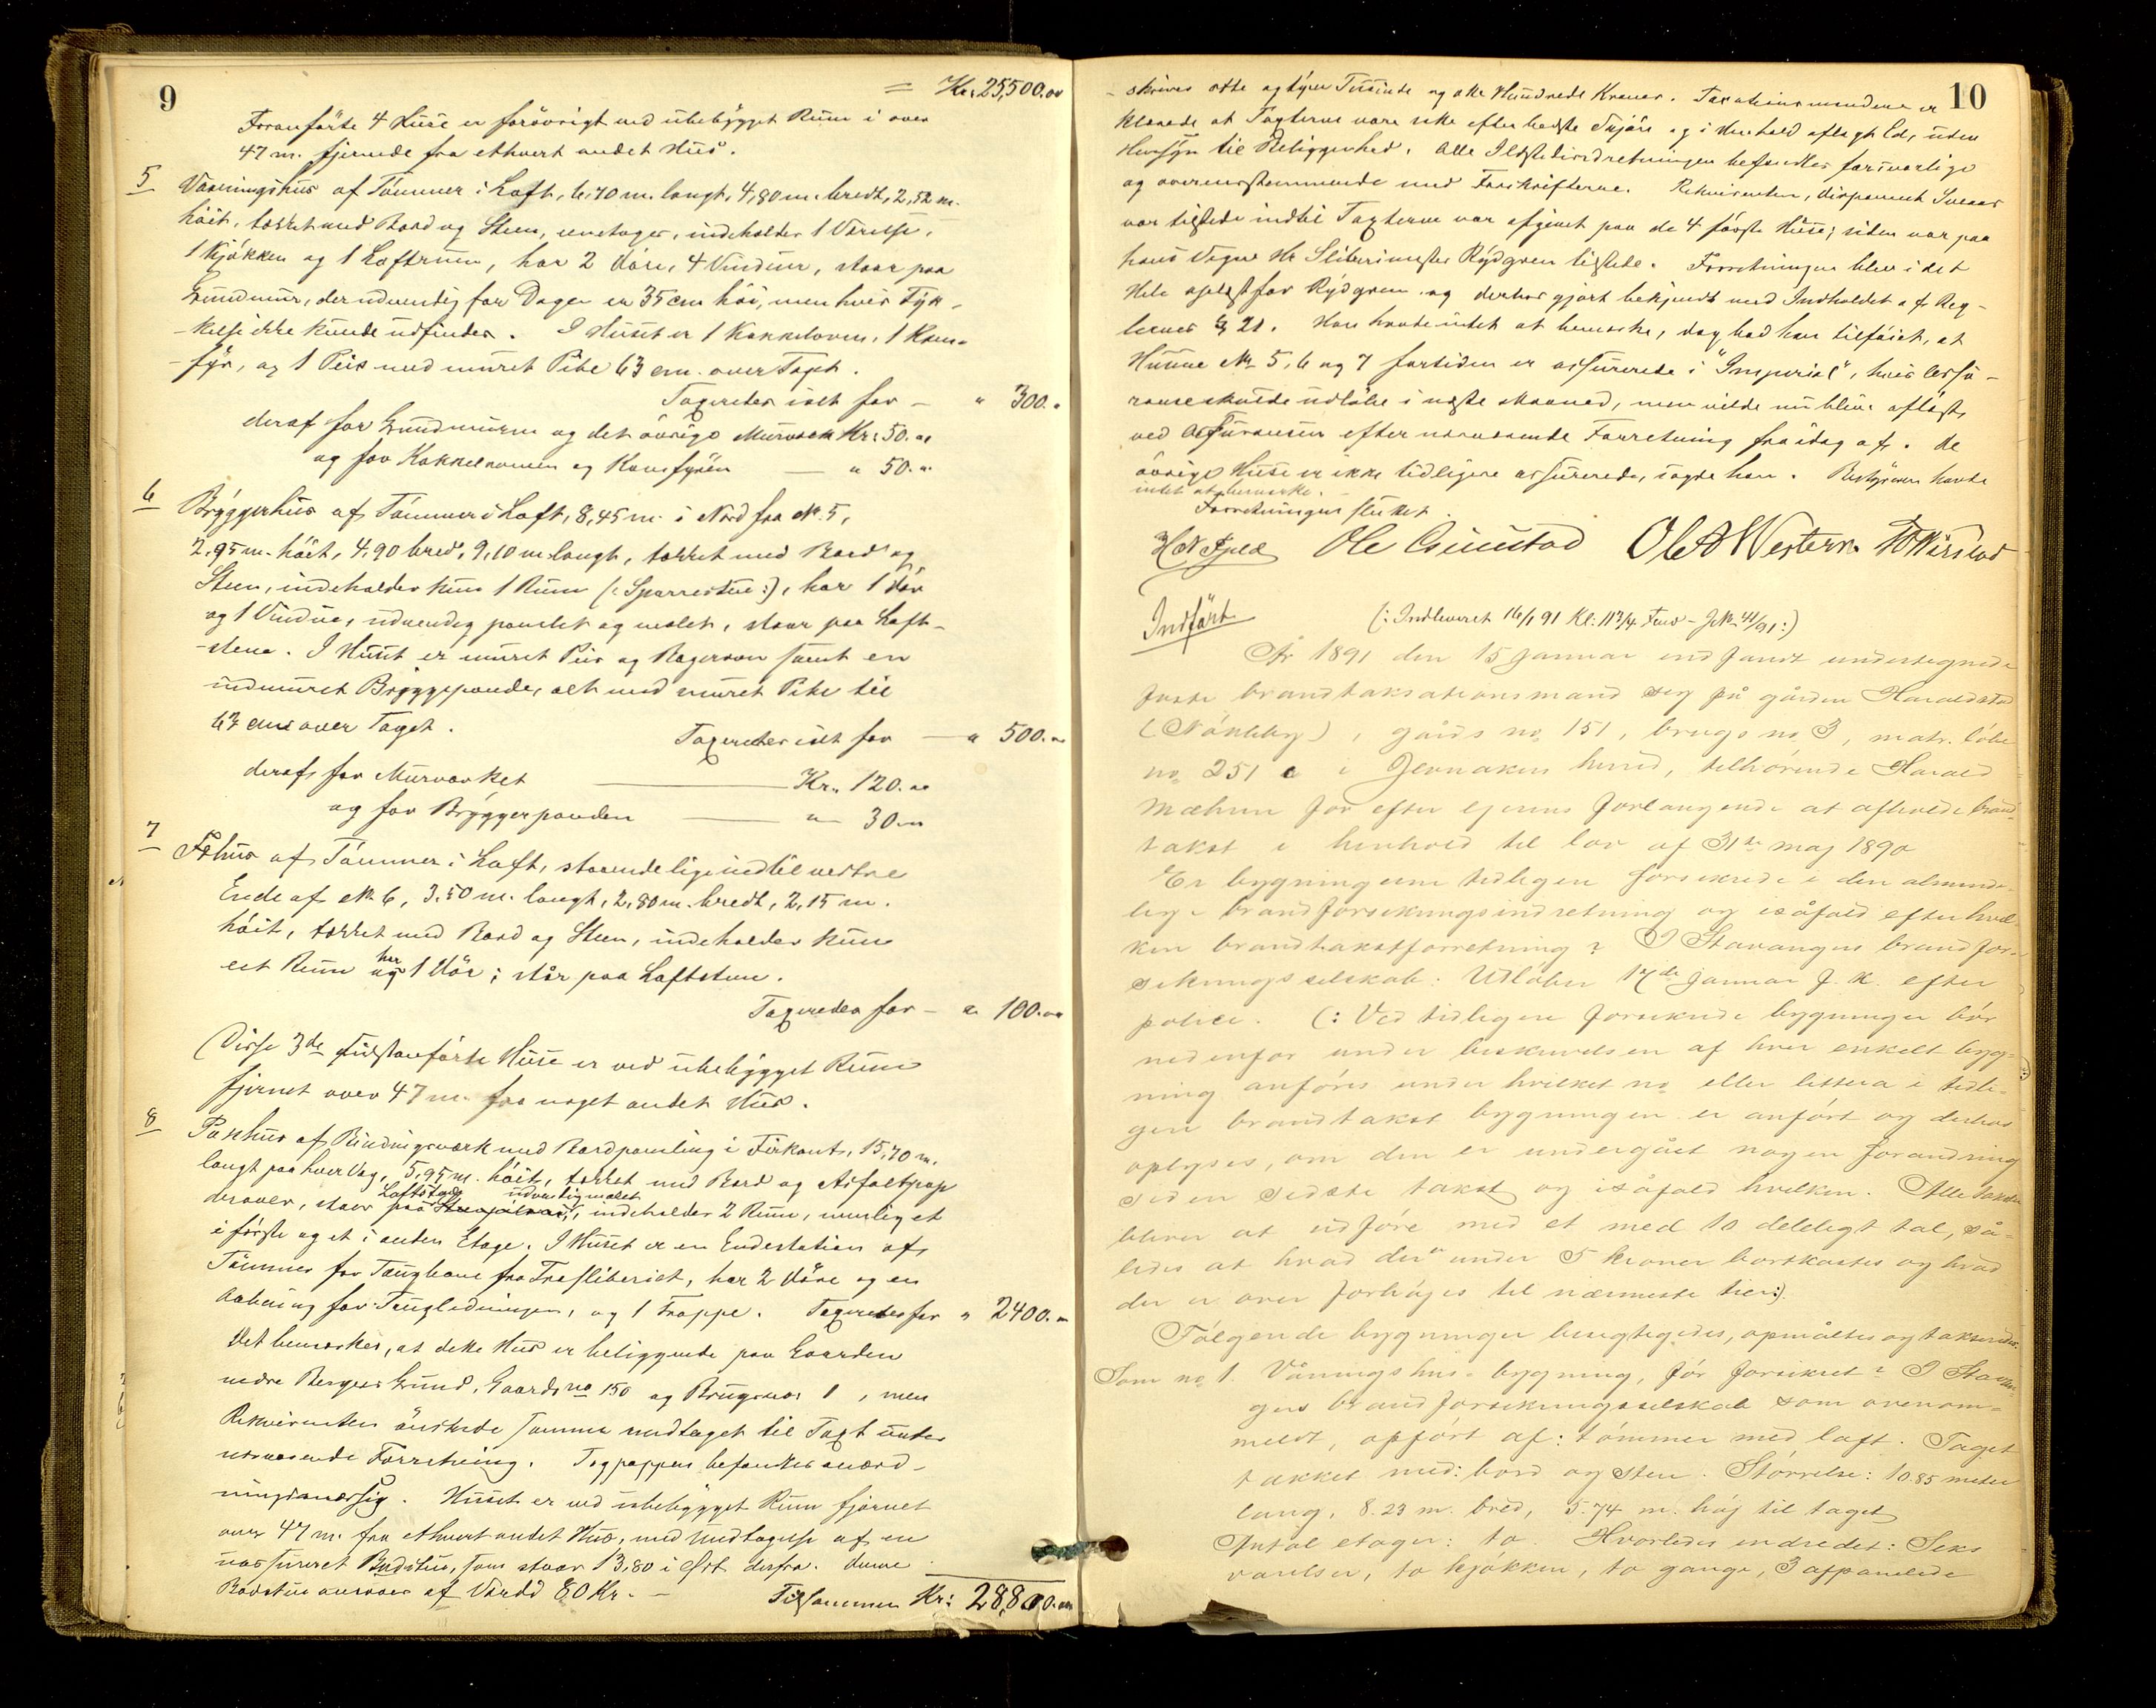 9
= Kr. 25,500.00
Foranførte 4 Huse er forøvrigt ved ubebygget Rum i over
47 m. fjernede fra ethvert andet Hus.
5 Vaaningshus af Tømmer i Laft, 6,70 m. langt, 4,80 m. bredt, 2,52 m.
høit, tækket med Bord og Steen, enetages, indeholder 1 Værelse,
1 Kjøkken og 1 Loftrum, har 2 Døre, 4 Vinduer, staar paa
Grundmur, der udvendig for Dagen er 35 cm høi, men hvis Tyk-
-kelse ikke kunde udfindes. I Huset er 1 Kakkelovn, 1 Kom-
-fyr, og 1 Peis med muret Pibe 63 cm. over Taget.
Taxeredes ialt for — " 300. "
deraf for Grundmuren og det øvrige Murværk Kr: 50. "
og for Kakkelovnen og Komfyren — " 50. "
6 Bryggerhus af Tømmer i Laft, 8,45 m. i Nord fra No. 5,
2,95 m. høit, 4,90 bred, 9,10 m. langt, tækket med Bord og
Steen, indeholder kun 1 Rum (: Sparrestue :), har 1 Dør
og 1 Vindue, udvendig panelet og malet, staar paa Laft-
-stene. I Huset er muret Peis og Bagerovn samt en
indmuret Bryggepande, alt med muret Pibe til
63 cm over Taget.
Taxeredes ialt for — " 500. "
deraf for Murværket — Kr. 120. "
og for Bryggerpanden — " 30. "
7 Fæhus af Tømmer i Laft, staaende lige indtil vestre
Ende af No. 6, 3,50 m. langt, 2,80 m. bredt, 2,15 m.
høit, tækket med Bord og Steen, indeholder kun
eet Rum og har 1 Dør; står paa Laftstene.
Taxeredes for — " 100. "
(Disse 3de sidstanførte Huse er ved ubebygget Rum
fjernet over 47 m. fra noget andet Hus.
8 Pakhus af Bindingsværk med Bordpaneling i Firkant, 15,70 m.
langt paa hver Væg, 5,95 m. høit, tækket med Bord og Asfaltpap
derover, staar paa Laftstene, udvendig malet, indeholder 2 Rum, nemlig et
i første og et i anden Etage. I Huset er en Endestation af
Tømmer for Taugbane fra Træsliberiet, har 2 Døre og en
Aabning for Taugledningen, og 1 Trappe. Taxeredes for " 2400. "
Det bemærkes, at dette Hus er beliggende paa Gaarden
nedre Bergers Grund, Gaards no 150 og Brugsno: 1, men
Rekvirenten ønskede samme medtaget til Taxt under
nærværende Forretning. Tagpappen befandtes anord-
ningsmæssig. Huset er ved ubebygget Rum fjernet
over 47 m. fra ethvert andet Hus, med Undtagelse af en
uassureret Badstue, som staar 13,80 i Øst derfra. Denne
Badstue ansees af Værdi 80 Kr. —
Tilsammen Kr: 28,800. "
10
- skriver otte og tyve Tusinde og otte Hundrede Kroner. Taxationsmændene er
klærede at Taxterne vare sket efter bedste Skjøn og i Henhold aflagt Ed, uden
Hensyn til Beliggenhed. Alle Ildstedsindretninger befandtes forsvarlige
og overensstemmende med Forskrifterne. Rekvirenten, disponent
var tilstede indtil Taxterne var afgivet paa de 4 første Huse; siden var paa
hans Vegne Hr Slibrimester Rydgren tilstede. Forretningen blev i det
Hele oplæst for Rydgren og derhos gjort bekjendt med Indholdet af Reg-
lernes § 21. Han havde intet at bemærke, dog bad han tilføiet, at
Husene No 5, 6 og 7 fortiden er assurerede i "Imperial", hvis Assu-
ranse skulde udløbe i næste Maaned, men vilde nu blive afløst
ved Assuransen efter nærværende Forretning fra idag af. De
øvrige Huse er ikke tidligere assurerede, sagde han. Bestyreren havde
intet at bemærke. —
Forretningen sluttet.
Ole Gunstad Ole A Western
Indført
(: Indleveret 16/1 91 Kl: 11 3/4 Form - J No 41/91 :)
År 1891 den 15 Januar indfandt undertegnede
faste brandtaksationsmænd sig på gården Haraldstad
(Nøkleby), gårds no. 151, brugs no 3, matr. løbe
no. 251 c i Jevnaker herred, tilhørende Harald
Mæhum for efter ejerens forlangende at afholde brand-
takst i henhold til lov af 31te maj 1890
Er bygningerne tidligere forsikrede i den alminde-
lige brandforsikringsindretning og isåfald efter hvil-
ken brandtakstforretning? I Stavanger brandfor-
sikringsselskab: Udløber 17de Januar f. k. efter
police. (: Ved tidligere forsikrede bygninger bør
nedenfor under beskrivelsen af hver enkelt byg-
ning anføres under hvilket no. eller littera i tidli-
gere brandtakst bygningen er anført og derhos
oplyses, om den er undergået nogen forandring
siden sidste takst og isåfald hvilken. Alle takster
bliver at udføre med et med 10 deleligt tal, så-
ledes at hvad der er under 5 kroner bortkastes og hvad
der er over forhøjes til nærmeste tier:).
Følgende bygninger besigtigedes, opmåltes og takseredes:
Som no. 1. Våningshus-bygning, før forsikret? I Stavan-
gers brandforsikringsselskab som ovenom-
meldt, opført af: tømmer med laft. Taget
tækket med: bord og sten. Størrelse: 10.85 meter
lang, 8.23 m. bred, 5.74 m. høj til taget
Antal etager: to Hvorledes indredet: Seks
værelser, to kjøkken, to gange, 3 afpanelede